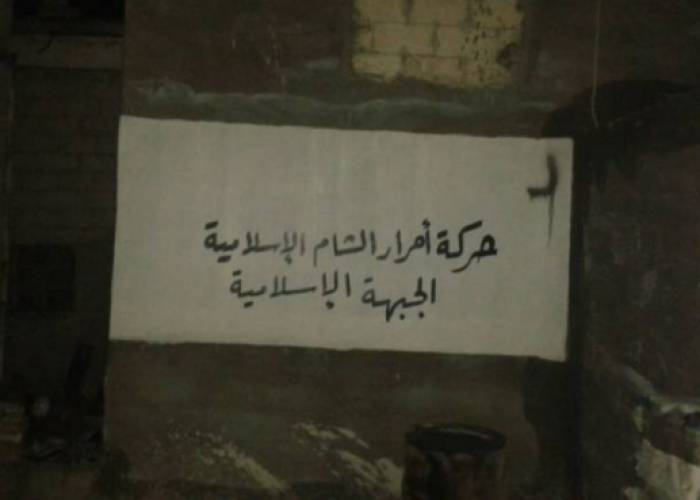 حركة أحرار الشام الإسلامية
الجبهة الإسلامية